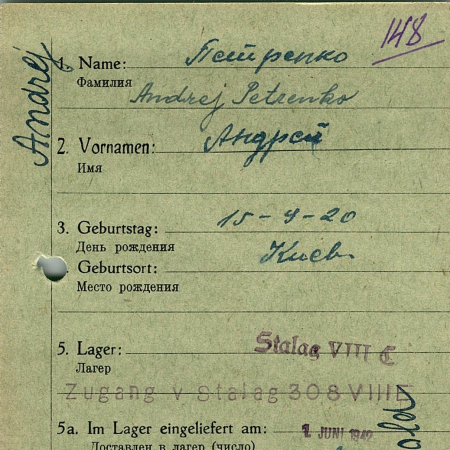 148
Andrej
1. Name: Петренко
Фамилия
Andrej Petrenko
2. Vornamen: Андрей
Имя
3. Geburtstag: 15-9-20
День рождения
Geburtsort: Киев.
Место рождения
5. Lager: Stalag VIII C
Лагер
Zugang v Stalag 308 VIII E
5a. Im Lager eingeliefert am: 1. JUNI 1942
Доставлен в лагер (число)